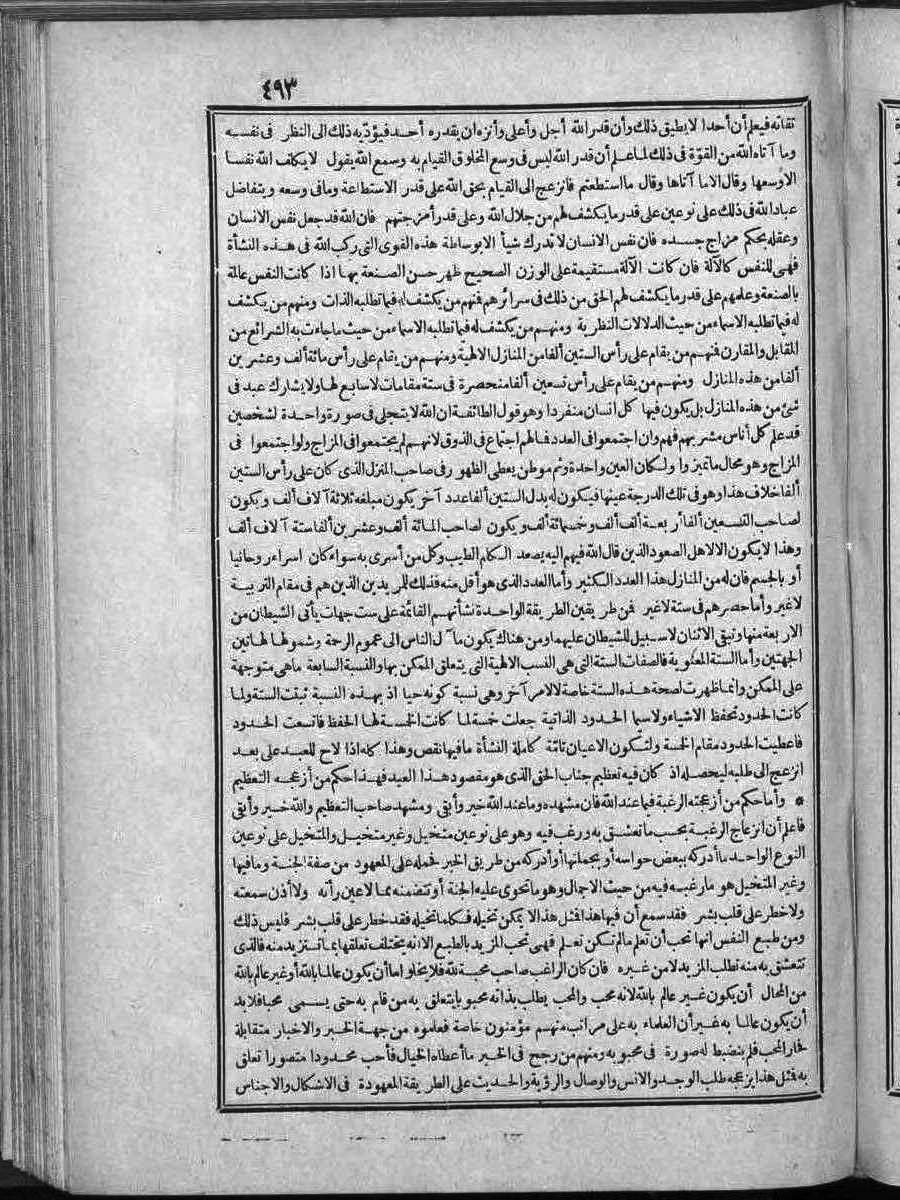 ٤٩٣
تقاته فيعلم أن أحدا لا يطيق ذلك وأن قدر الله أجل وأعلى وأنزه ان يقدره أحد فيؤدّيه ذلك الى النظر فى نفسه
وما آتاه الله من القوّة فى ذلك لما علم أن قدر الله ليس فى وسع المخلوق القيام به وسمع الله يقول لا يكلف الله نفسا
الا وسعها وقال الا ما آتاها وقال ما استطعتم فانزعج الى القيام بحق الله على قدر الاستطاعة وما فى وسعه ويتفاضل
عباد الله فى ذلك على نوعين على قدر ما يكشف لهم من جلال الله وعلى قدر أمزجتهم فان الله قد جعل نفس الانسان
وعقله بحكم مزاج جسده فان نفس الانسان لا تدرك شيأ الا بوساطة هذه القوى التى ركب الله فى هذه النشأة
فهى للنفس كالآلة فان كانت الآلة مستقيمة على الوزن الصحيح ظهر حسن الصنعة بها اذا كانت النفس عالمة
بالصنعة وعلمهم على قدر ما يكشف لهم الحق من ذلك فى سرائرهم فمنهم من يكشف له فيما تطلبه الذات ومنهم من يكشف
له فيما تطلبه الاسماء من حيث الدلالات النظرية ومنهم من يكشف له فيما تطلبه الاسماء من حيث ما جاءت به الشرائع من
المقابل والمقارن فمنهم من يقام على رأس الستين ألفا من المنازل الالهية ومنهم من يقام على رأس مائة ألف وعشرين
ألفا من هذه المنازل ومنهم من يقام على رأس تسعين ألفا منحصرة فى ستة مقامات لا سابع لها ولا يشارك عبد فى
شئ من هذه المنازل بل يكون فيها كل انسان منفردا وهو قول الطائفة ان الله لا يتجلى فى صورة واحدة لشخصين
قد علم كل أناس مشربهم فهم وان اجتمعوا فى العدد فما لهم اجتماع فى الذوق لانهم لم يجتمعوا فى المزاج ولو اجتمعوا فى
المزاج وهو محال ما تميزوا ولكان العين واحدة وثم موطن يعطى الظهور فى صاحب المنزل الذى كان على رأس الستين
ألفا خلاف هذا وهو فى تلك الدرجة عينها فيكون له بدل الستين ألفا عدد آخر يكون مبلغه ثلاثة آلاف ألف ويكون
لصاحب التسعين ألفا أربعة ألف ألف وخسمائة ألف ويكون لصاحب المائة ألف وعشرين ألفا ستة آلاف ألف
وهذا لا يكون الا لاهل الصعود الذين قال الله فيهم اليه يصعد الكلم الطيب وكل من أسرى به سواء كان اسراء روحانيا
أو بالجسم فان له من المنازل هذا العدد الكثير وأما العدد الذى هو أقل منه فذلك للمريدين الذين هم فى مقام التربية
لا غير وأما حصرهم فى ستة لا غير فمن طريقين الطريقة الواحدة نشأتهم القائمة على ست جهات يأتى الشيطان من
الاربعة منها وتبقى الاثنان لا سبيل للشيطان عليهما ومن هناك يكون مآل الناس الى عموم الرحمة وشمولها لهاتين
الجهتين وأما الستة المعنوية فالصفات الستة التى هى النسب الالهية التى يتعلق الممكن بها والنسبة السابعة ماهى متوجهة
على الممكن وانما ظهرت لصحة هذه الستة خاصة لا لامر آخر وهى نسبة كونه حيا اذ بهذه النسبة ثبتت الستة ولما
كانت الحدود تحفظ الاشياء ولا سيما الحدود الذاتية جعلت خمسة لما كانت الخمسة لها الحفظ فاتسعت الحدود
فاعطيت الحدود مقام الخمسة ولتكون الاعيان تامّة كاملة النشأة ما فيها نقص وهذا كله اذا لاح للعبد على بعد
انزعج الى طلبه ليحصله اذ كان فيه تعظيم جناب الحق الذى هو مقصود هذا العبد فهذا حكم من أزعجه التعظيم
* وأما حكم من أزعجته الرغبة فيما عند الله فان مشهده وما عند الله خير وأبقى ومشهد صاحب التعظيم والله خير وأبقى
فاعلم أن انزعاج الرغبة بحسب ما تعشق به ورغب فيه وهو على نوعين متخيل وغير متخيل والمتخيل على نوعين
النوع الواحد ما أدركه ببعض حواسه أو بجملتها أو أدركه من طريق الخبر فحمله على المعهود من صفة الجنة وما فيها
وغير المتخيل هو ما رغب فيه من حيث الاجمال وهو ما تحوى عليه الجنة أو تتضمنه مما لا عين رأته ولا أذن سمعته
ولا خطر على قلب بشر فقد سمع أن فيها هذا فمثل هذا لا يمكن تخيله فكلما تخيله فقد خطر على قلب بشر فليس ذلك
ومن طبع النفس انها تحب أن تعلم مالم تكن تعلم فهى تحب المزيد بالطبع الا انه يختلف تعلقها بما تستزيد منه فالذى
تتعشق به منه تطلب المزيد لا من غيره فان كان الراغب صاحب محبة لله فلا يخلو اما أن يكون عالما بالله أو غير عالم بالله
من المحال أن يكون غير عالم بالله لانه محب والمحب يطلب بذاته محبوبا يتعلق به من قام به حتى يسمى محبا فلابد
أن يكون عالما به غير أن العلماء به على مراتب منهم مؤمنون خاصة فعلموه من جهة الخبر والاخبار متقابلة
فحار المحب فلم ينضبط له صورة فى محبوبه ومنهم من رجح فى الخبر ما أعطاه الخيال فأحب محدودا متصورا تعلق
به فمثل هذا يزعجه طلب الوجد والانس والوصال والرؤية والحديث على الطريقة المعهودة فى الاشكال والاجناس